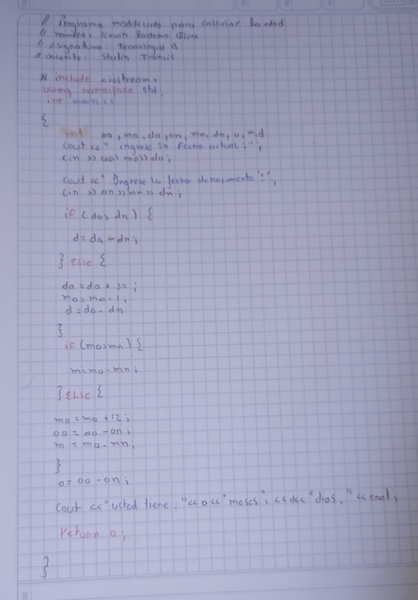 // Programa modificado para calcular la edad
// nombre: Kevin
// asignatura: Tecnologia
# include <iostream>
using namespace std
int main ()
{
int aa, ma, da, an, mn, dn, a, m, d
cout << " ingrese la fecha actual : ";
cin >> aa >> ma >> da;
cout << " Ingrese la fecha de nacimiento : ";
cin >> an >> mn >> dn;
if (da> dn) {
d= da - dn;
} ELSE {
da = da + 30 ;
ma = ma - 1;
d = da - dn
}
if (ma>mn) {
m= ma - mn;
} ELSE {
ma = ma + 12;
aa = aa - an;
m = ma - mn;
}
a = aa - an;
cout << "usted tiene : " << a << "meses"; << d << "dias, " << endl;
return 0;
}